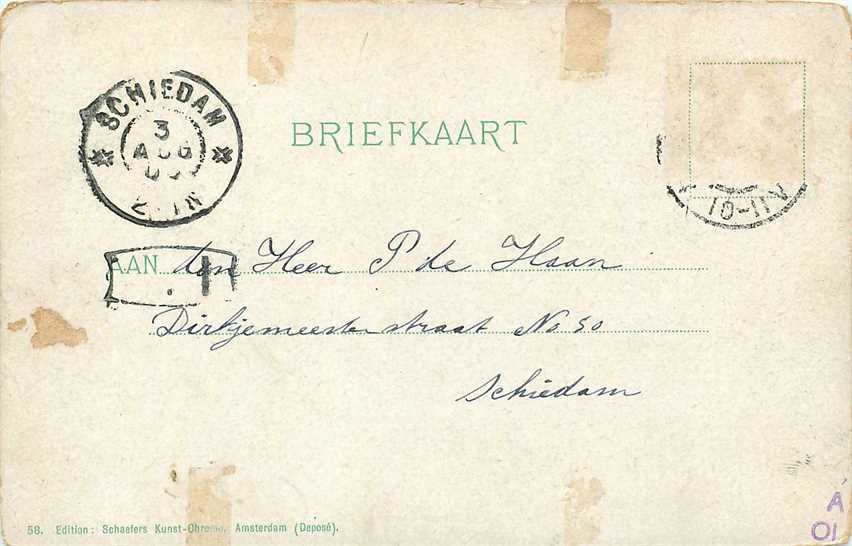 SCHIEDAM
3
AUG
BRIEFKAART
10-11V
AAN den Heer P de Haan
Dirkjemeesterstraat No 50
Schiedam
58. Edition: Schaefers Kunst-Chromo, Amsterdam (Deposé).
A
01